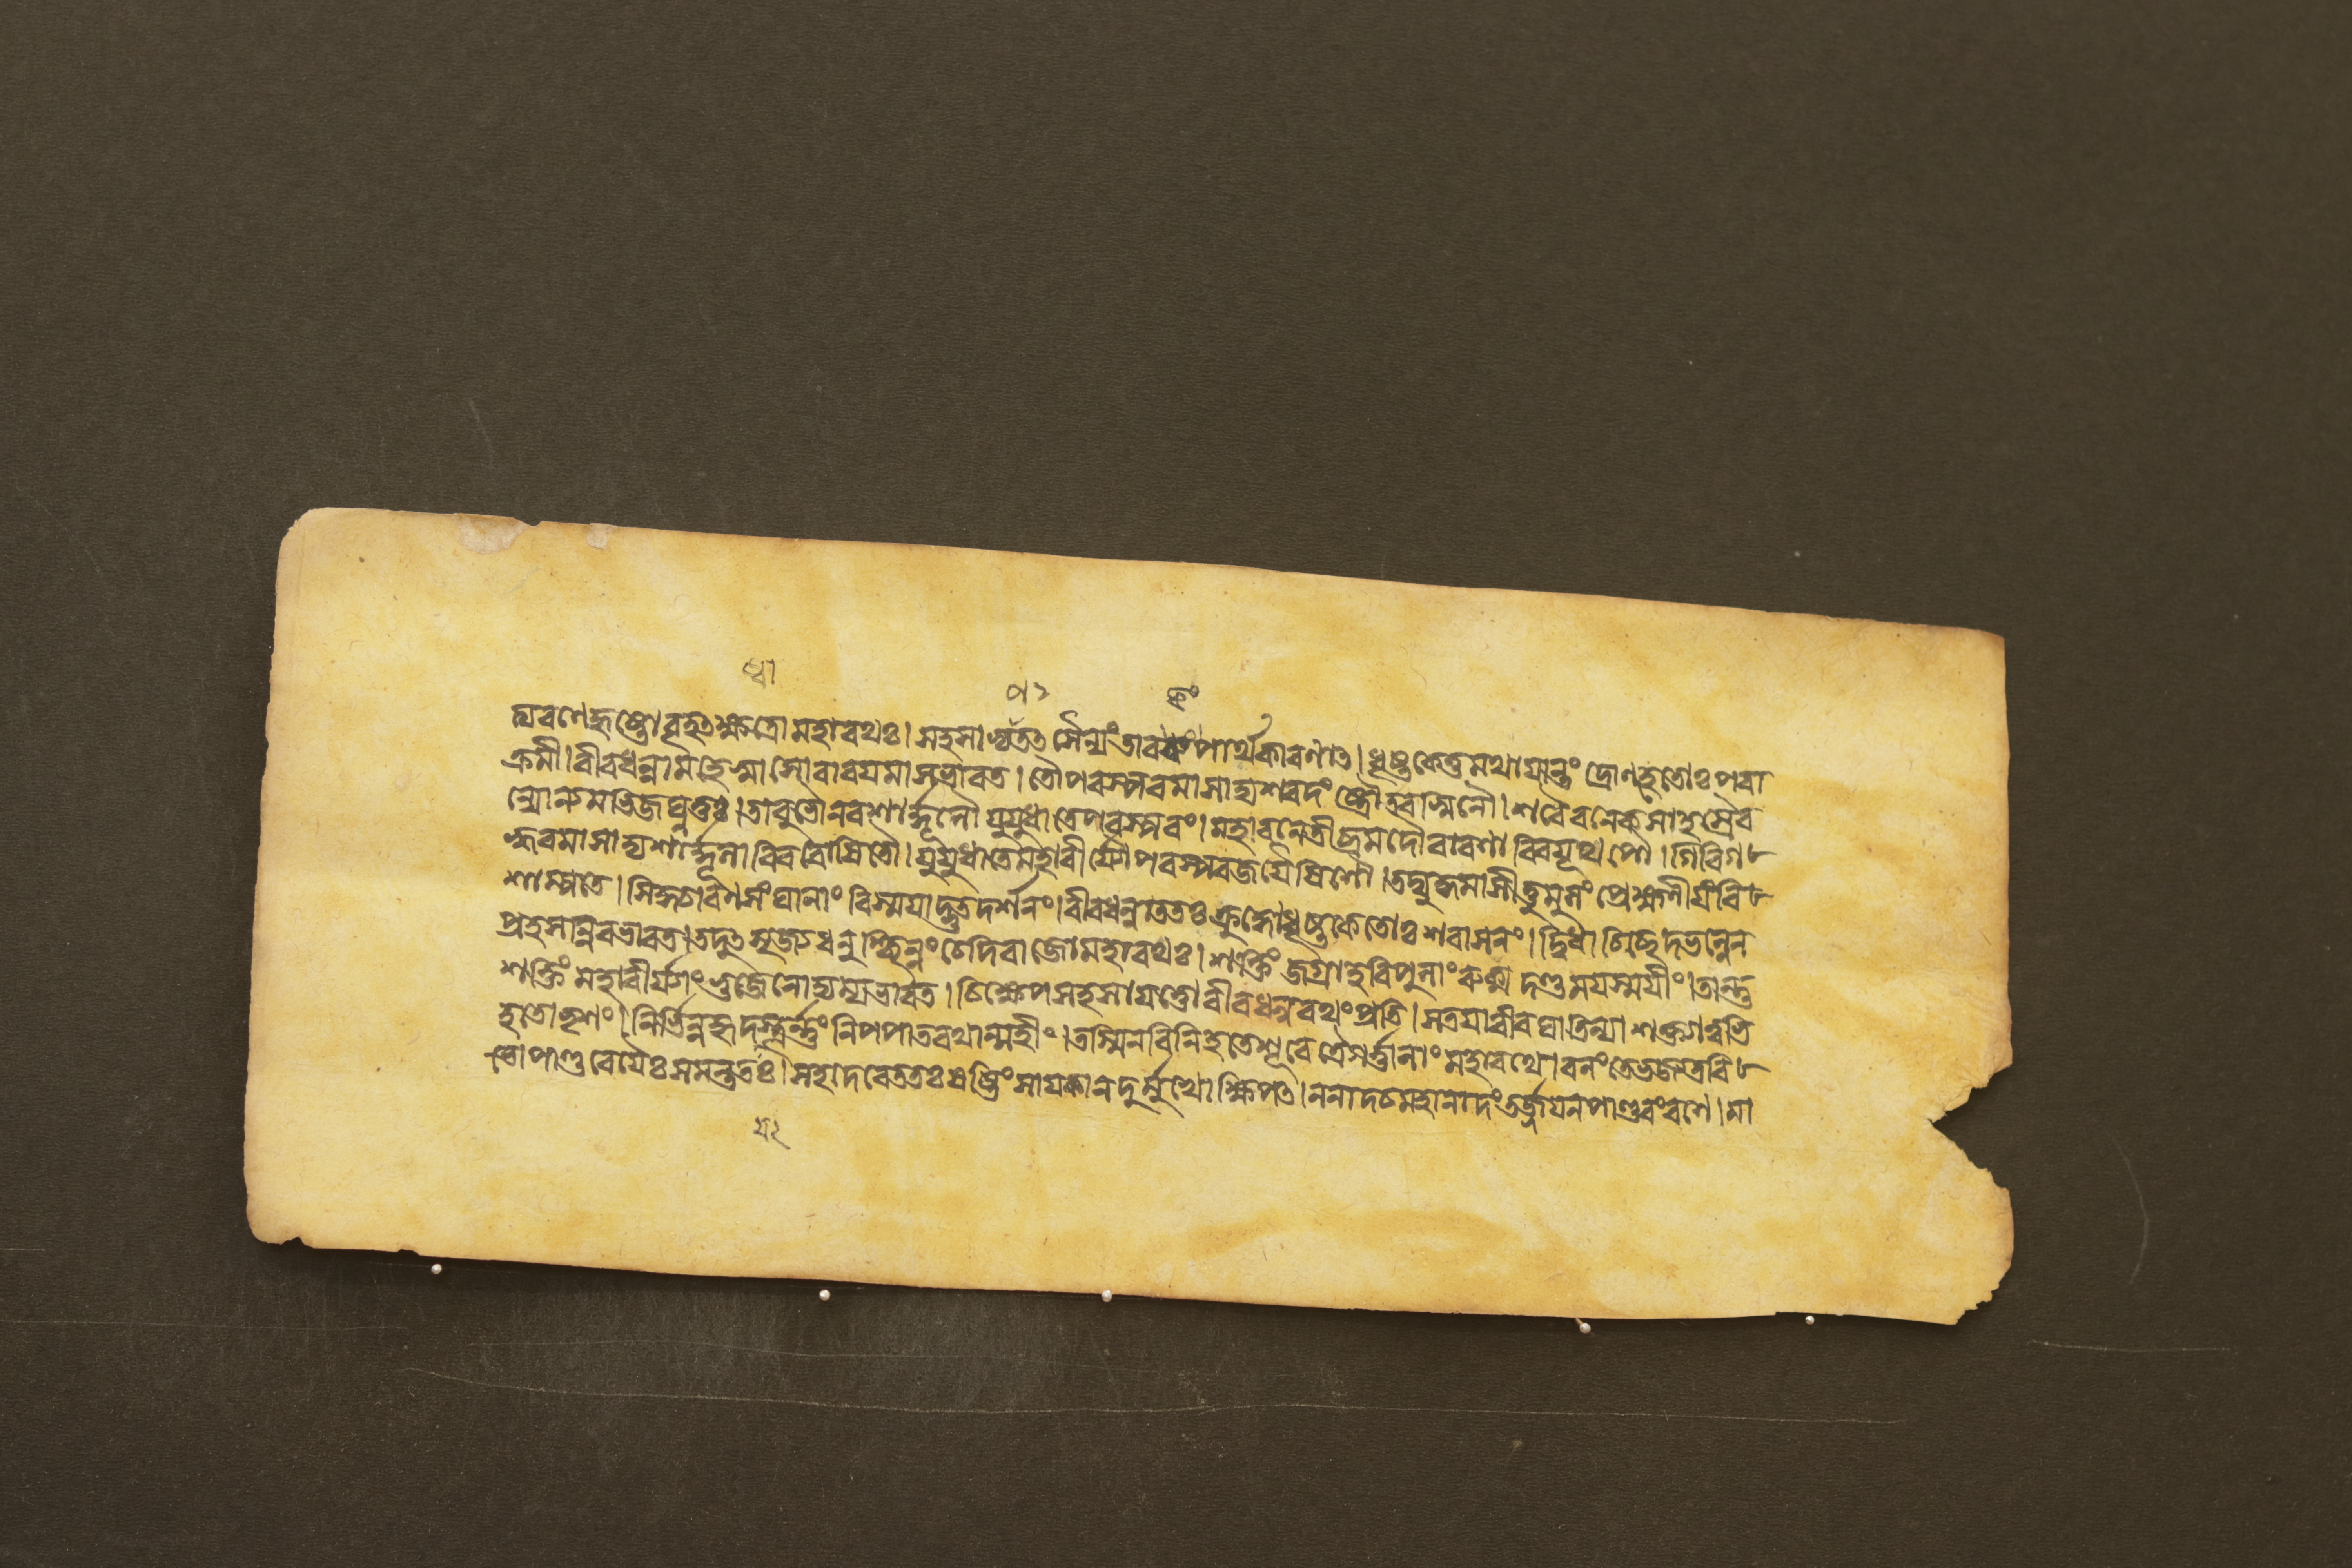 প২ কং
দ্যরণেহৃষ্টোবৃহৎক্ষত্রোমহারথঃ। সহসাভ্যততৎসৈন্যংতাবকংপার্থকারণাৎ। ধৃষ্টকেতুমথায়ান্তং দ্রোণহেতোঃপরা
ক্রমী। বীরধন্বামহেষ্বাসোবারয়মাসভারত। তৌপরস্পরমাসাদ্যশরদংষ্ট্রৌতরস্বিনৌ। শরৈরনেকসাহস্রৈর
ন্যোন্যমভিজঘ্নতুঃ। তাবুভৌনরশার্দ্দূলৌযুযুধাতেপরস্পরং। মহাবনেতীব্রমদৌবারণাবিবযূথপৌ। গিরিগ
হ্বরমাসাদ্যশার্দ্দূলাবিবরোষিতৌ। যুযুধাতেমহাবীর্য্যৌপরস্পরজয়ৈষিণৌ। তদ্যুদ্ধমাসীত্তুমুলং প্রেক্ষণীয়ংবি
শাম্পতে। সিদ্ধচারণসংঘানাং বিস্ময়াদ্ভুতদর্শনং। বীরধন্বাততঃক্রুদ্ধোধৃষ্টকেতোঃশরাসনং। দ্বিধাচিচ্ছেদভল্লেন
প্রহসন্নিবভারত। তদুৎসৃজ্যধনুশ্ছিন্নংচেদিরাজোমহারথঃ। শক্তিং জগ্রাহবিপুলাংরুক্মদণ্ডময়স্ময়ীং। তান্তু
শক্তিং মহাবীর্য্যাংভুজেনোদ্যম্যভারত। চিক্ষেপসহসায়ত্তোবীরধন্বরথংপ্রতি। সতয়াবীরঘাতিন্যাশক্ত্যাত্বভি
হতোভৃশং। নির্ভিন্নহৃদস্তূর্ণংনিপপাতরথান্মহীং। তস্মিনবিনিহতেশূরেত্রৈগর্ত্তানাংমহারথে। বলংতেভজ্যতবি
ভোপাণ্ডবেয়ৈঃসমন্ততঃ। সহদেবেততঃষষ্টিংসায়কানদুর্ম্মুখোক্ষিপৎ। ননাদচমহানাদংতর্জ্জয়নপাণ্ডবংরণে। মা
য২